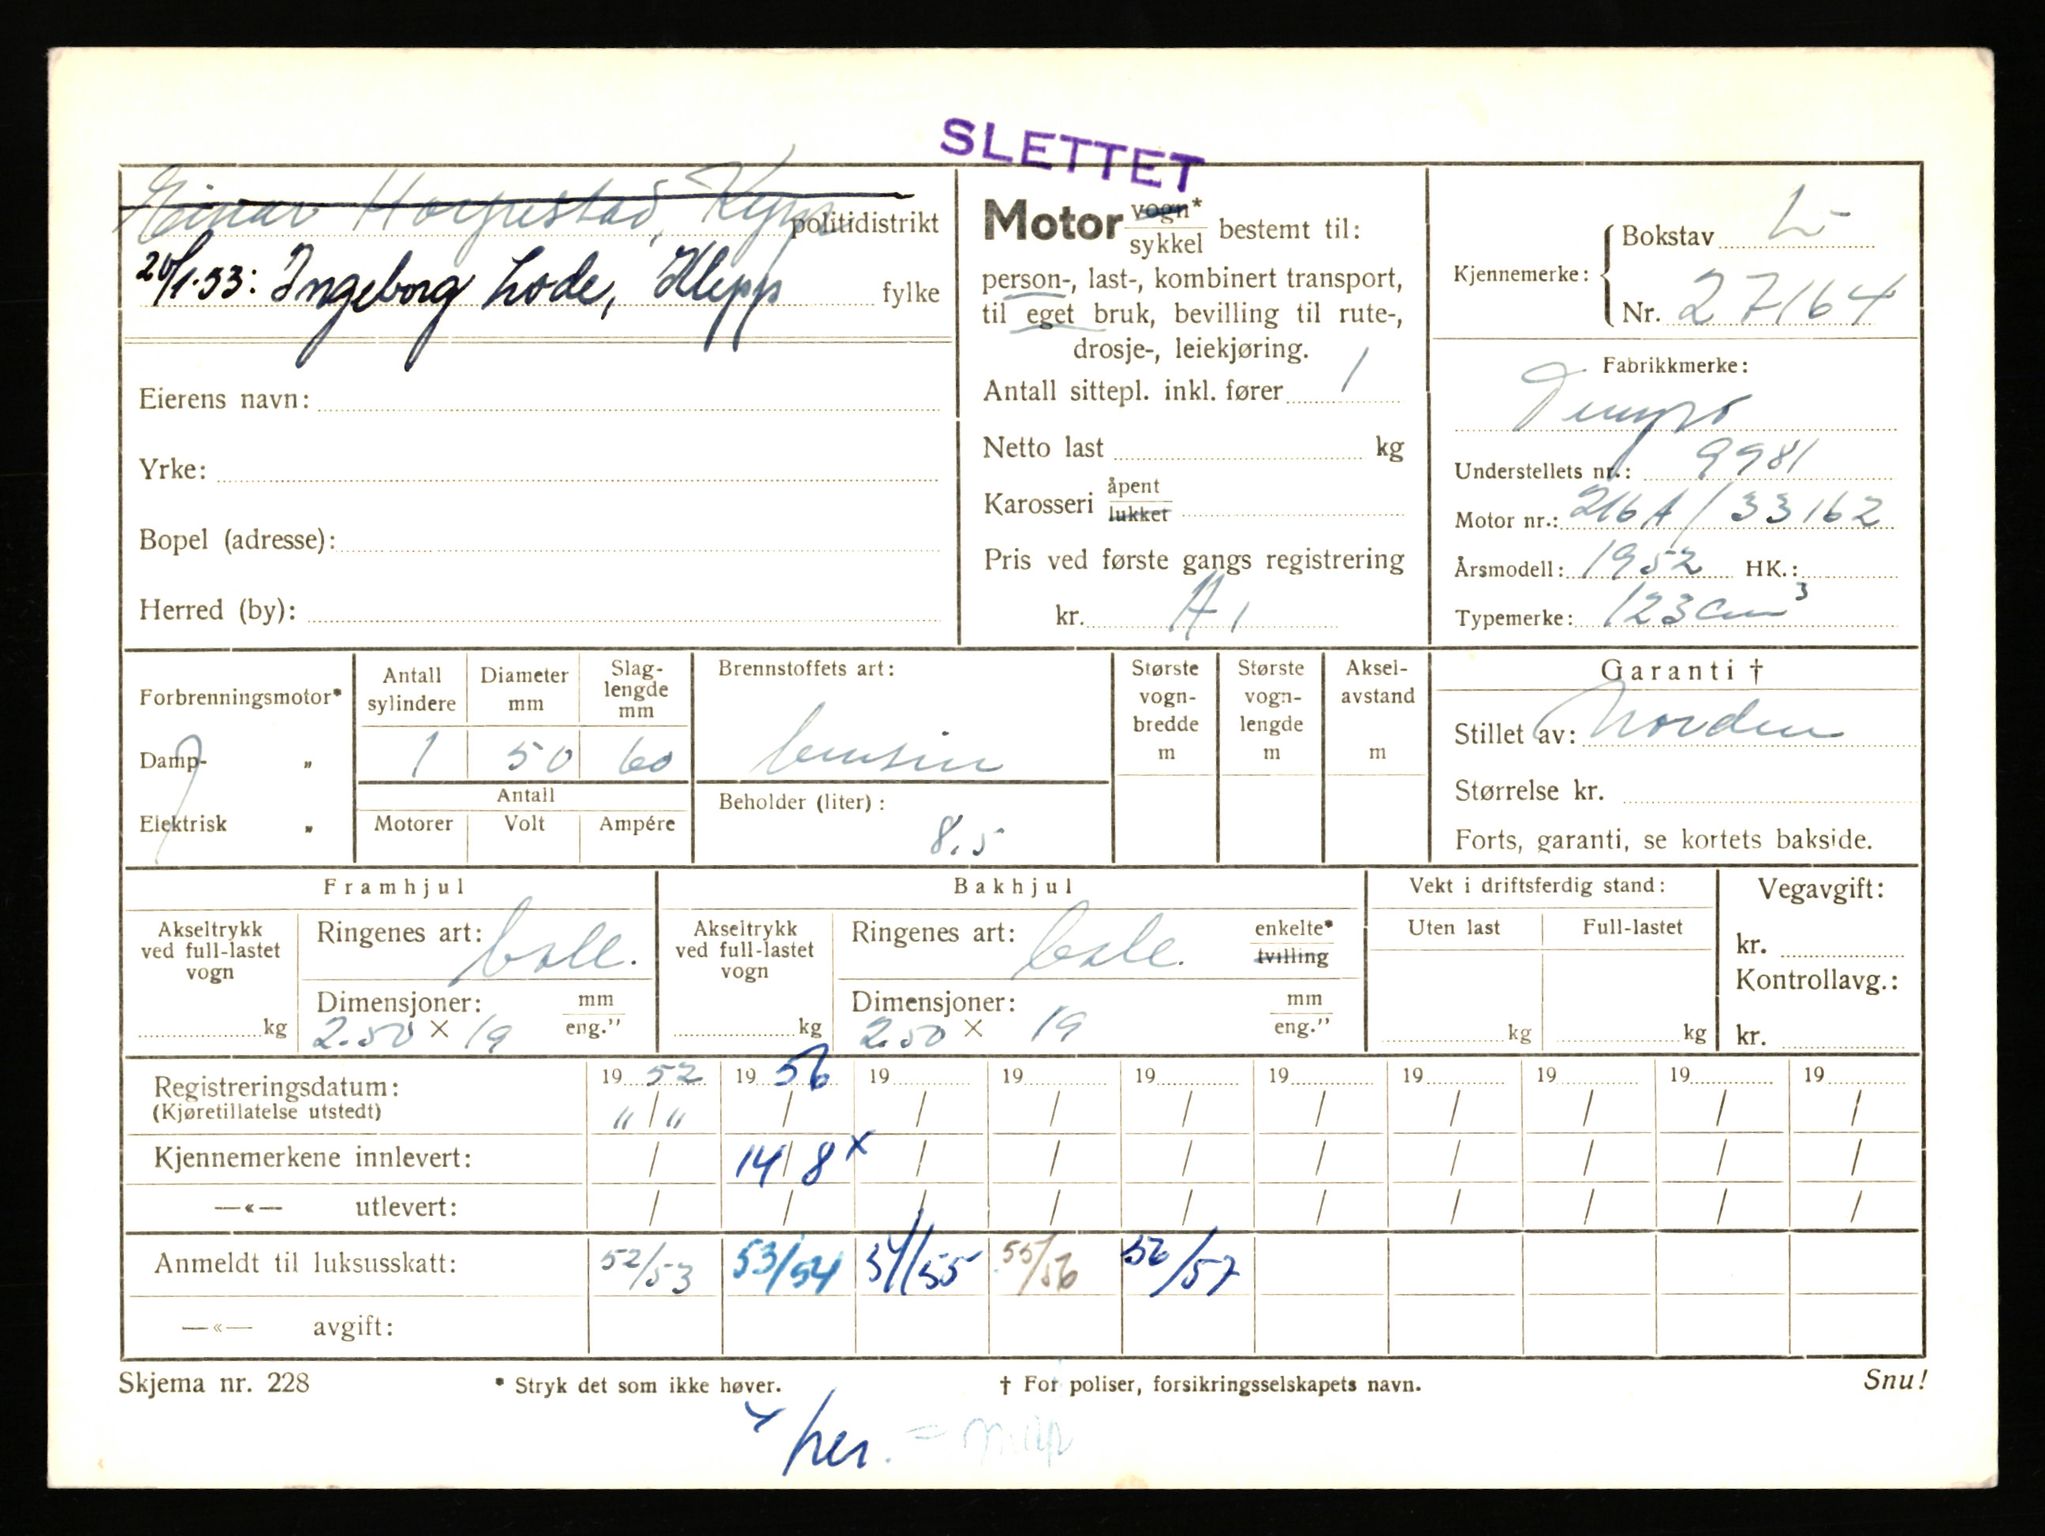 SLETTET
Einar Horpestad, Klepp politidistrikt
20/1.53: Ingeborg Lode, Klepp fylke
Eierens navn:
Yrke:
Bopel (adresse):
Herred (by):
Motor vogn* sykkel bestemt til:
person-, last-, kombinert transport,
til eget bruk, bevilling til rute-,
drosje-, leiekjøring.
Antall sittepl. inkl. fører 1
Netto last kg
Karosseri åpent lukket
Pris ved første gangs registrering
kr. A,
Kjennemerke: Bokstav L
Nr. 27164
Fabrikkmerke:
Tempo
Understellets nr.: 9981
Motor nr.: 216A/33162
Årsmodell: 1952 HK.:
Typemerke: 123 cm³
Forbrenningsmotor*
Damp- „
Elektrisk „
Antall sylindere Diameter mm Slag-lengde mm
1 50 60
Antall
Motorer Volt Ampére
Brennstoffets art:
bensin
Beholder (liter):
8.5
Største vogn-bredde m
Største vogn-lengde m
Aksel-avstand m
Garanti †
Stillet av: Norden
Størrelse kr.
Forts, garanti, se kortets bakside.
Framhjul
Akseltrykk ved full-lastet vogn
kg
Ringenes art: ball.
Dimensjoner: mm eng."
2.50 × 19
Bakhjul
Akseltrykk ved full-lastet vogn
kg
Ringenes art: ball. enkelte* tvilling
Dimensjoner: mm eng."
2.50 × 19
Vekt i driftsferdig stand:
Uten last Full-lastet
kg kg
Vegavgift:
kr.
Kontrollavg.:
kr.
Registreringsdatum: 19 52 19 56 19 19 19 19 19 19 19 19
(Kjøretillatelse utstedt) " / " / / / / / / / / /
Kjennemerkene innlevert: / 14/8 x / / / / / / / /
—«— utlevert: / / / / / / / / / /
Anmeldt til luksusskatt: 52/53 53/54 54/55 55/56 56/57
—«— avgift:
Skjema nr. 228 * Stryk det som ikke høver. † For poliser, forsikringsselskapets navn. Snu!
her.